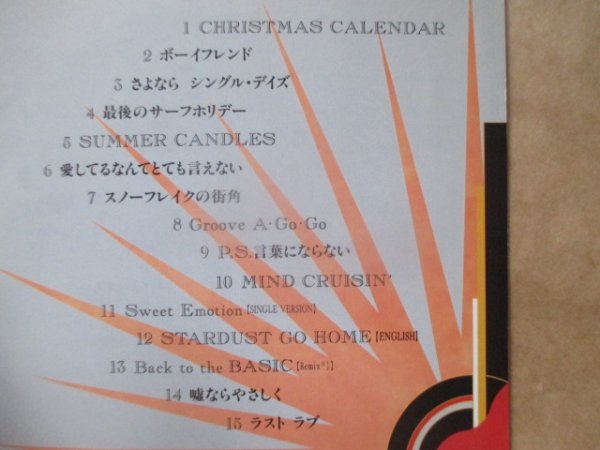 1 CHRISTMAS CALENDAR
2 ボーイフレンド
3 さよなら シングル・デイズ
4 最後のサーフホリデー
5 SUMMER CANDLES
6 愛してるなんてとても言えない
7 スノーフレイクの街角
8 Groove A・Go・Go
9 P.S.言葉にならない
10 MIND CRUISIN'
11 Sweet Emotion【SINGLE VERSION】
12 STARDUST GO HOME【ENGLISH】
13 Back to the BASIC【Remix*1】
14 嘘ならやさしく
15 ラスト ラブ